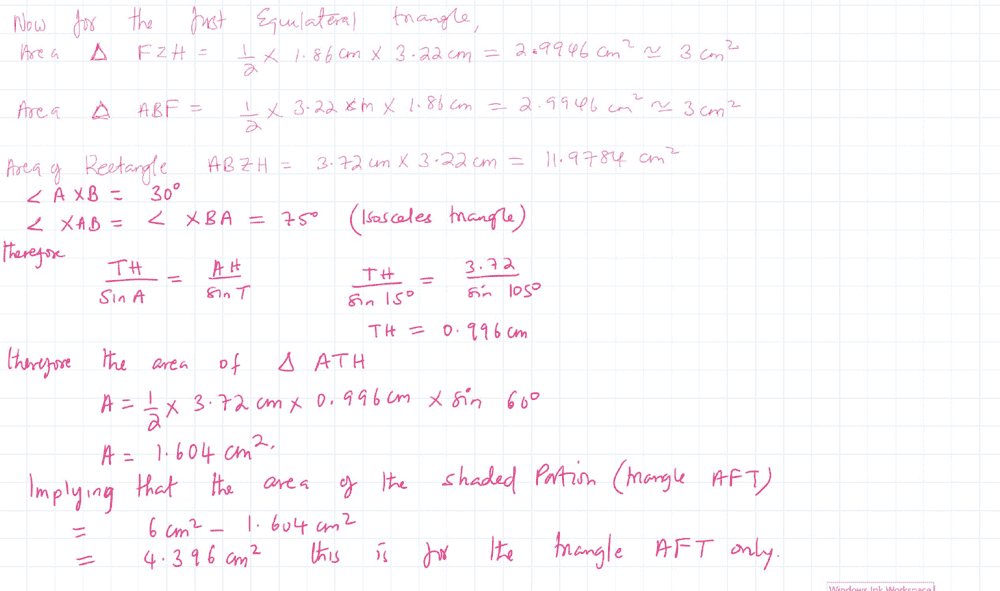 Now for the first Equilateral triangle,
Area Δ FZH = 1/2 × 1.86 cm × 3.22 cm = 2.9946 cm² ≃ 3 cm²
Area Δ ABF = 1/2 × 3.22 cm × 1.86 cm = 2.9946 cm² ≃ 3 cm²
Area of Rectangle ABZH = 3.72 cm × 3.22 cm = 11.9784 cm²
∠ AXB = 30°
∠ XAB = ∠ XBA = 75° (Isosceles triangle)
therefore
TH/Sin A = AH/Sin T TH/sin 15° = 3.72/sin 105°
TH = 0.996 cm
therefore the area of Δ ATH
A = 1/2 × 3.72 cm × 0.996 cm × sin 60°
A = 1.604 cm².
Implying that the area of the shaded Portion (triangle AFT)
= 6 cm² − 1.604 cm²
= 4.396 cm² this is for the triangle AFT only.
Windows Ink Workspace